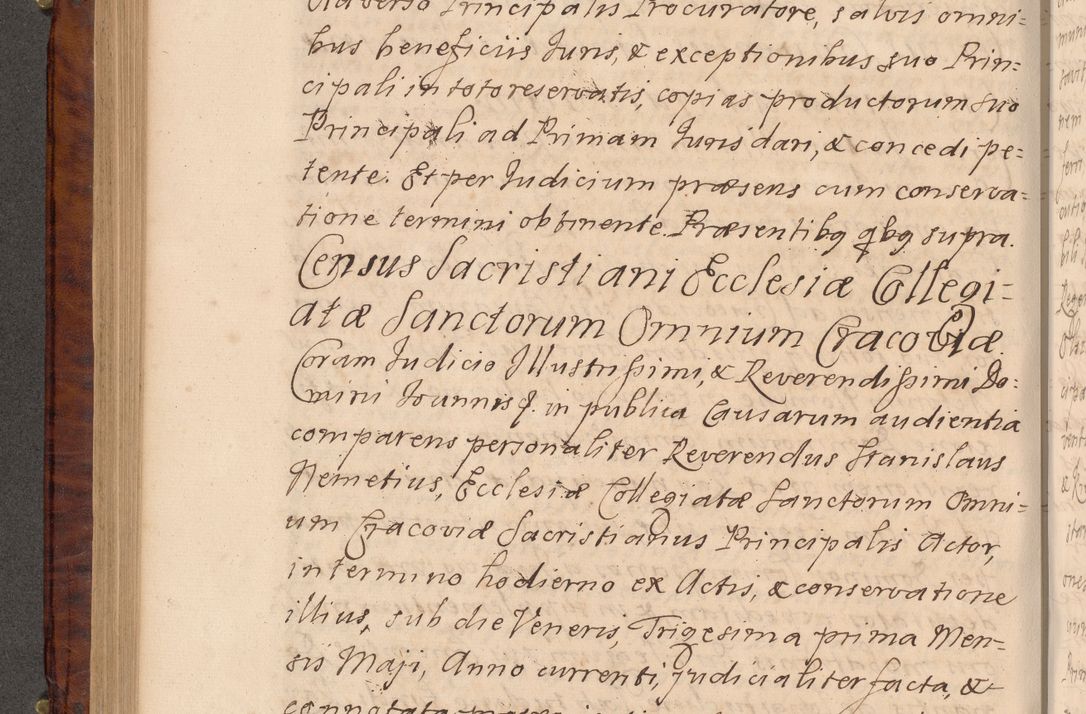 Adverso Principalis Procuratore, salvis omni=
bus beneficiis Juris, & exceptionibus suo Prin=
cipali in toto reservatis, copias productorum suo
Principali ad Primam Juris dari, & concedi pe=
tente. Et per Judicium præsens cum conserva=
tione termini obtinente. Præsentibq qbq supra.
Census Sacristiani Ecclesiæ Collegi=
atæ Sanctorum Omnium Cracoviæ
Coram Judicio Illustrissimi, & Reverendissimi Do=
mini Joannis in publica Causarum audientia
comparens personaliter Reverendus Stanislaus
Nemetius, Ecclesiæ Collegiatæ Sanctorum Omni=
um Cracoviæ Sacristianus Principalis Actor,
in termino hodierno ex Actis, & conservatione
illius, sub die Veneris, Trigesima prima Men-
sis Maji, Anno currenti, judicialiter facta, &
connotata